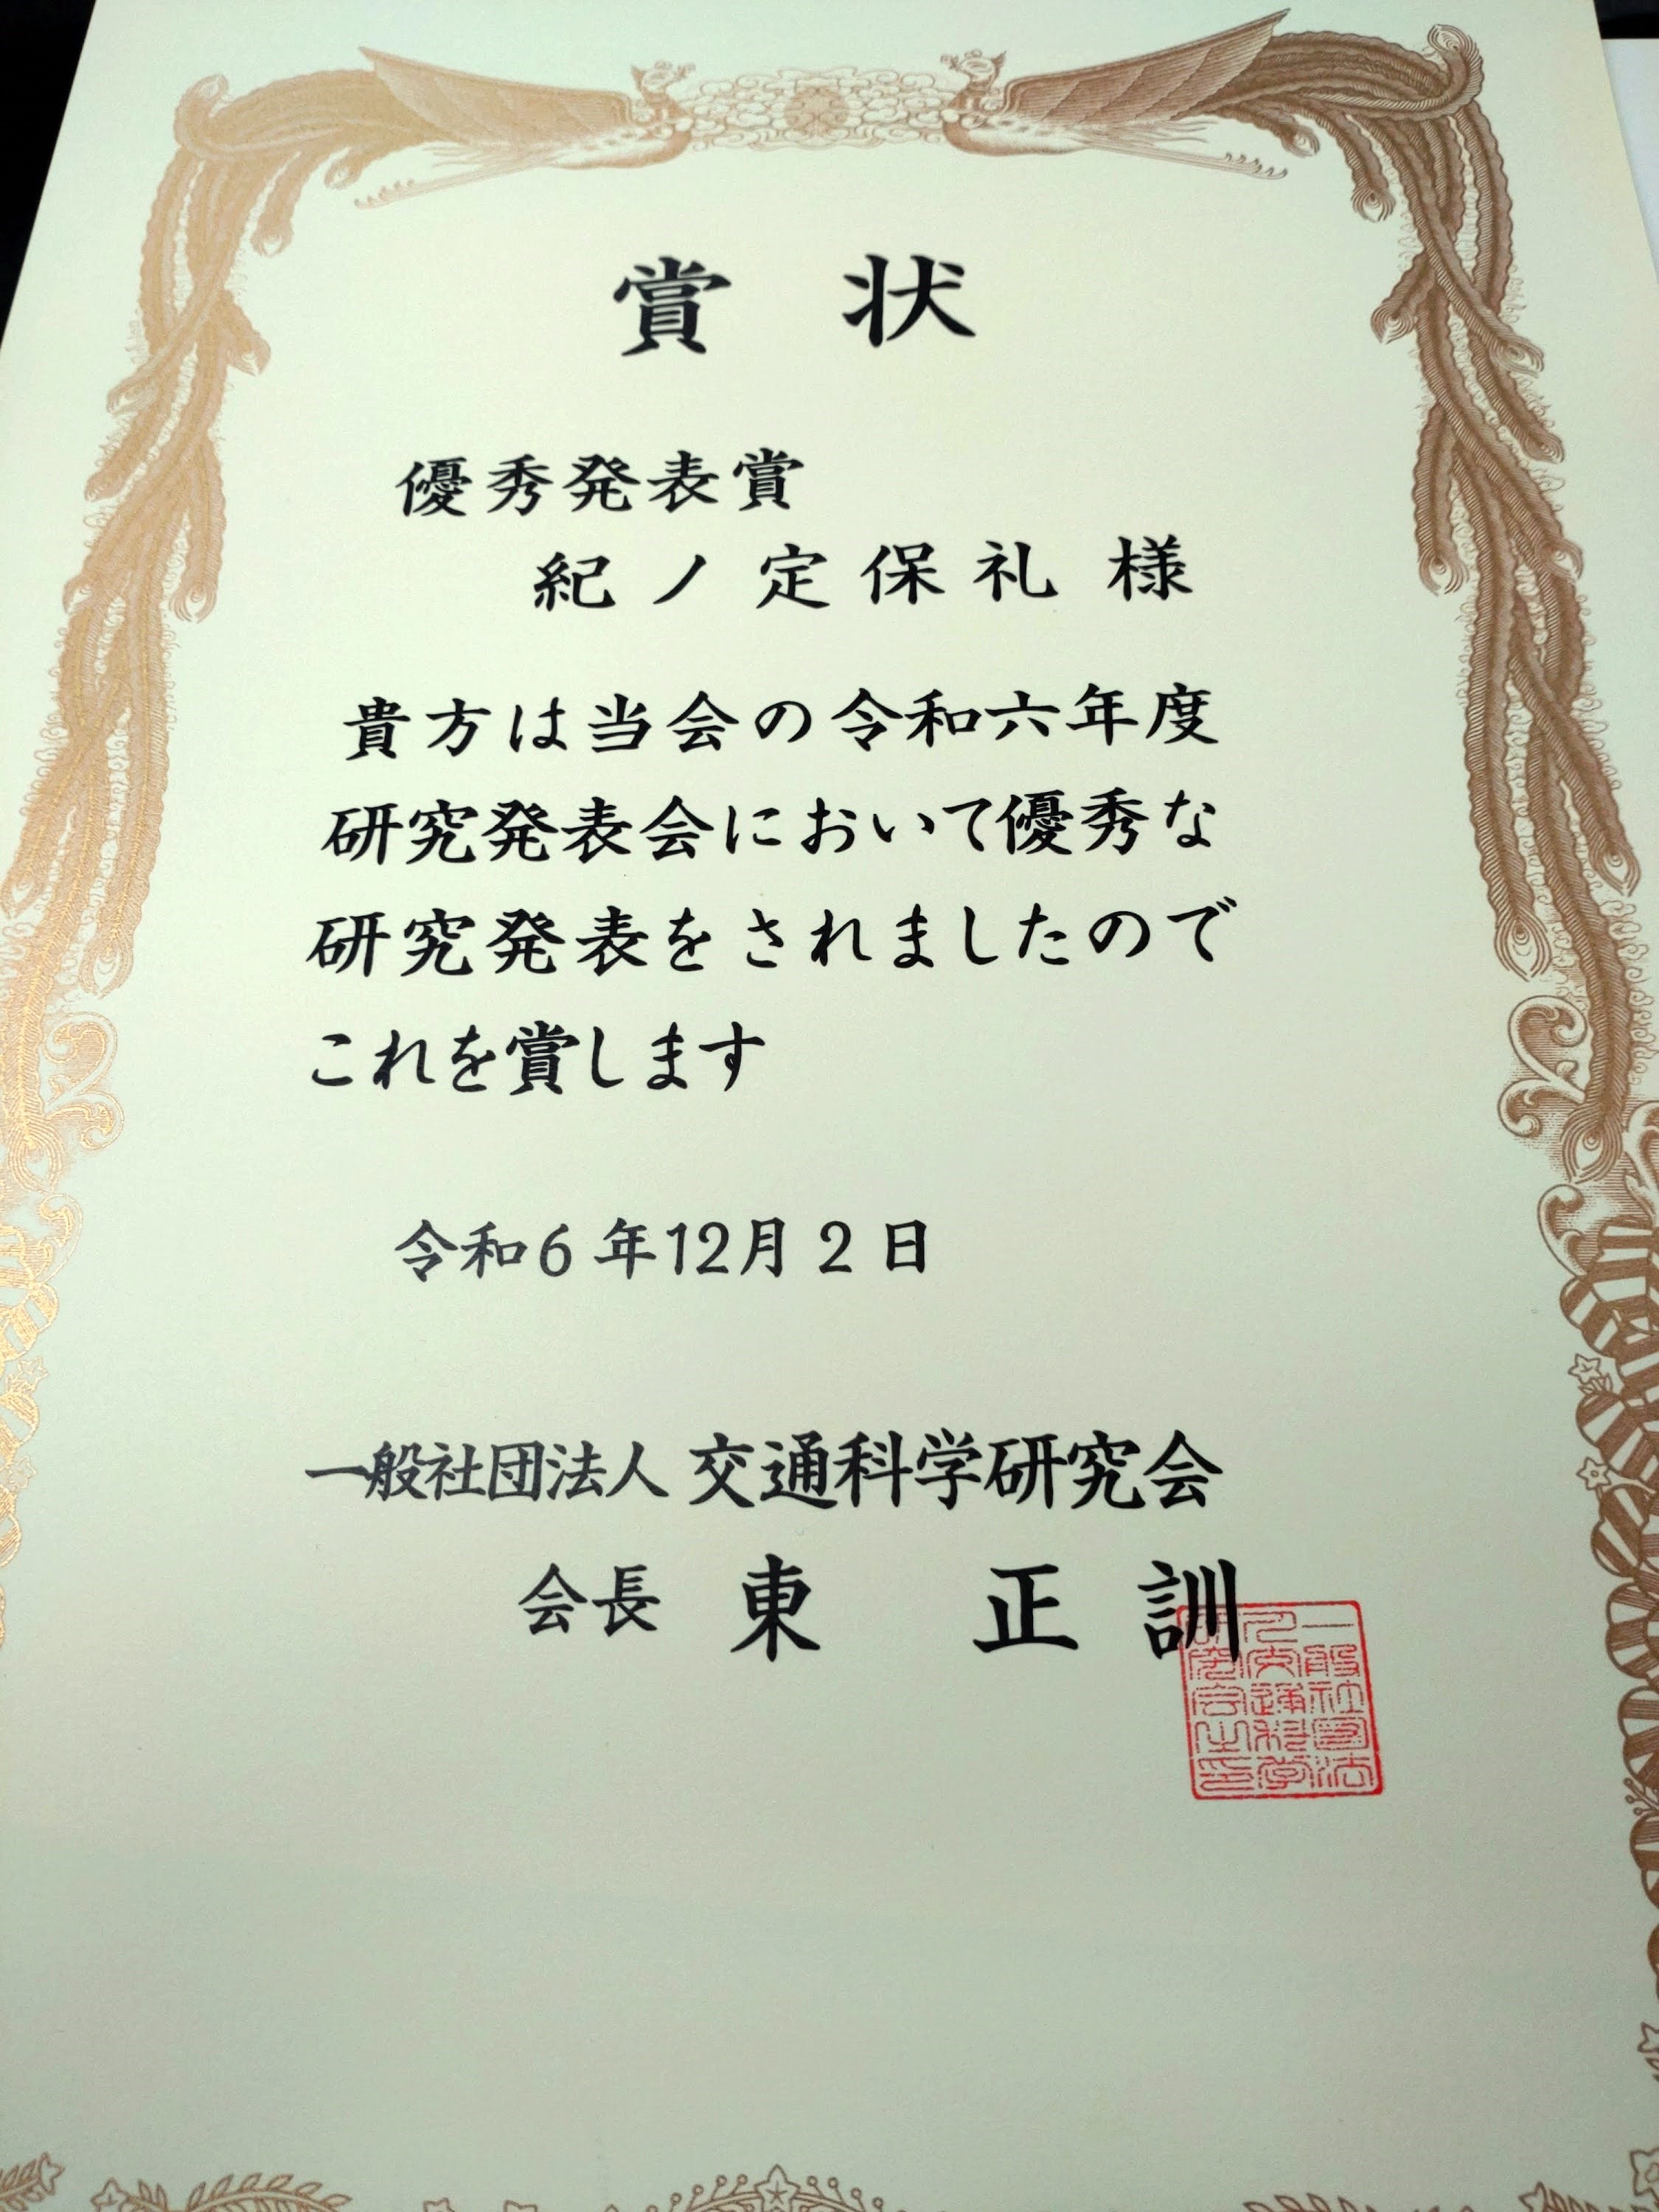 賞 状
優秀発表賞
紀ノ定保礼 様
貴方は当会の令和六年度
研究発表会において優秀な
研究発表をされましたので
これを賞します
令和6年12月2日
一般社団法人 交通科学研究会
会長 東 正訓
一般社団法
人交通科学
研究会之印